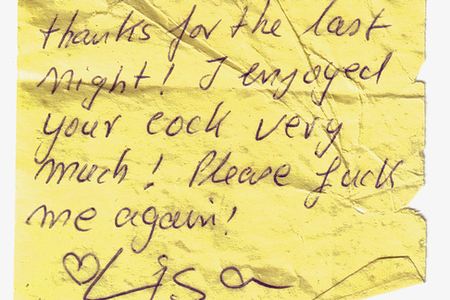 thanks for the last
night! I enjoyed
your cock very
much! Please fuck
me again!
♡Lisa